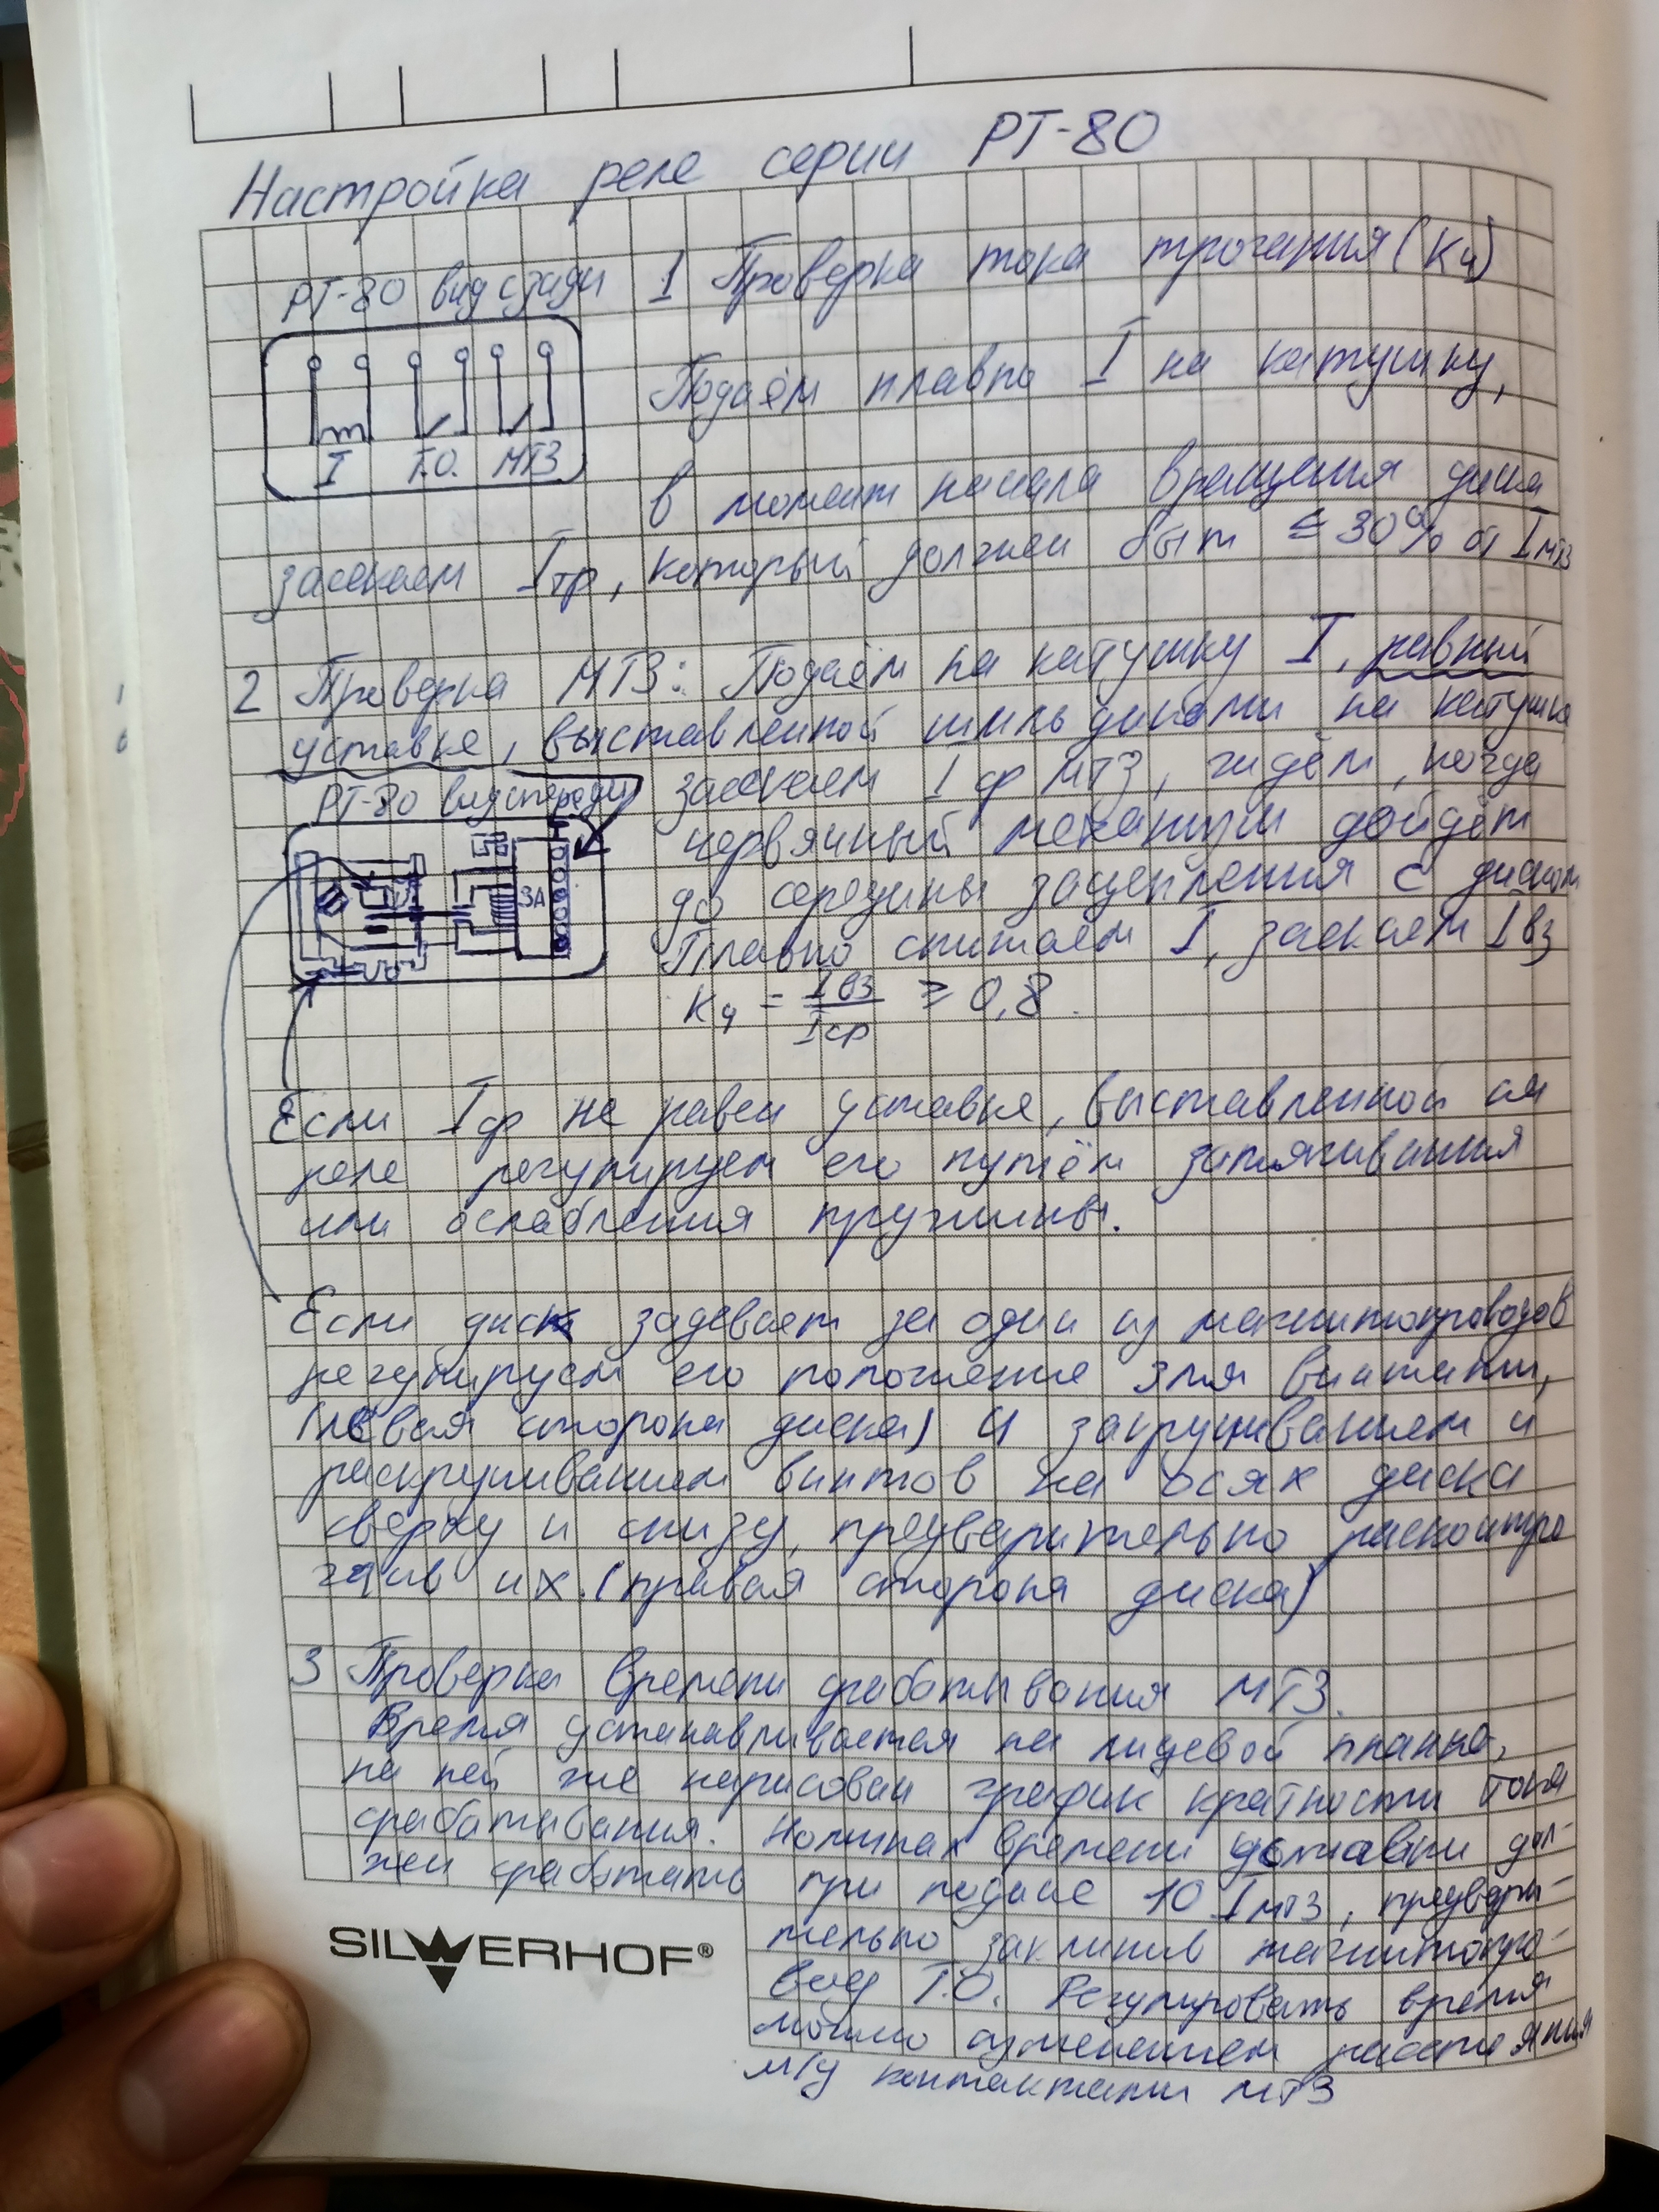 Настройка реле серии РТ-80
РТ-80 вид сзади
I Т.О. МТЗ
1 Проверка тока трогания (Кч)
Подаём плавно I на катушку,
в момент начала вращения диска
засекаем Iтр, который должен быт ≤ 30% от Iмтз
2 Проверка МТЗ: Подаём на катушку I, равный
уставке, выставленной шпильдиками на катушке
РТ-80 вид спереди
ЗА
засекаем Iср МТЗ, ждём, когда
червячный механизм дойдёт
до середины зацепления с диском
Плавно снижаем I, засекаем Iвз
Кч = Iвз / Iср ≥ 0,8.
Если Iср не равен уставке, выставленной на
реле регулируем его путём затягивания
или ослабления пружины.
Если диск задевает за один из магнитопроводов
регулируем его положение 3мя винтами,
(левая сторона диска) и закручиванием и
раскручиванием винтов на осях диска
сверху и снизу, предварительно расконтро
гаив их. (правая сторона диска)
3 Проверка времени срабатывания МТЗ.
Время устанавливается на лицевой планке,
на ней же нарисован график кратности тока
срабатывания. Номинал времени уставки дол-
жен сработать при подаче 10 Iмтз, предвари-
тельно заклинив магнитопро-
вод Т.О. Регулировать время
можно изменением расстояния
м/у контактами МТЗ
SILWERHOF®